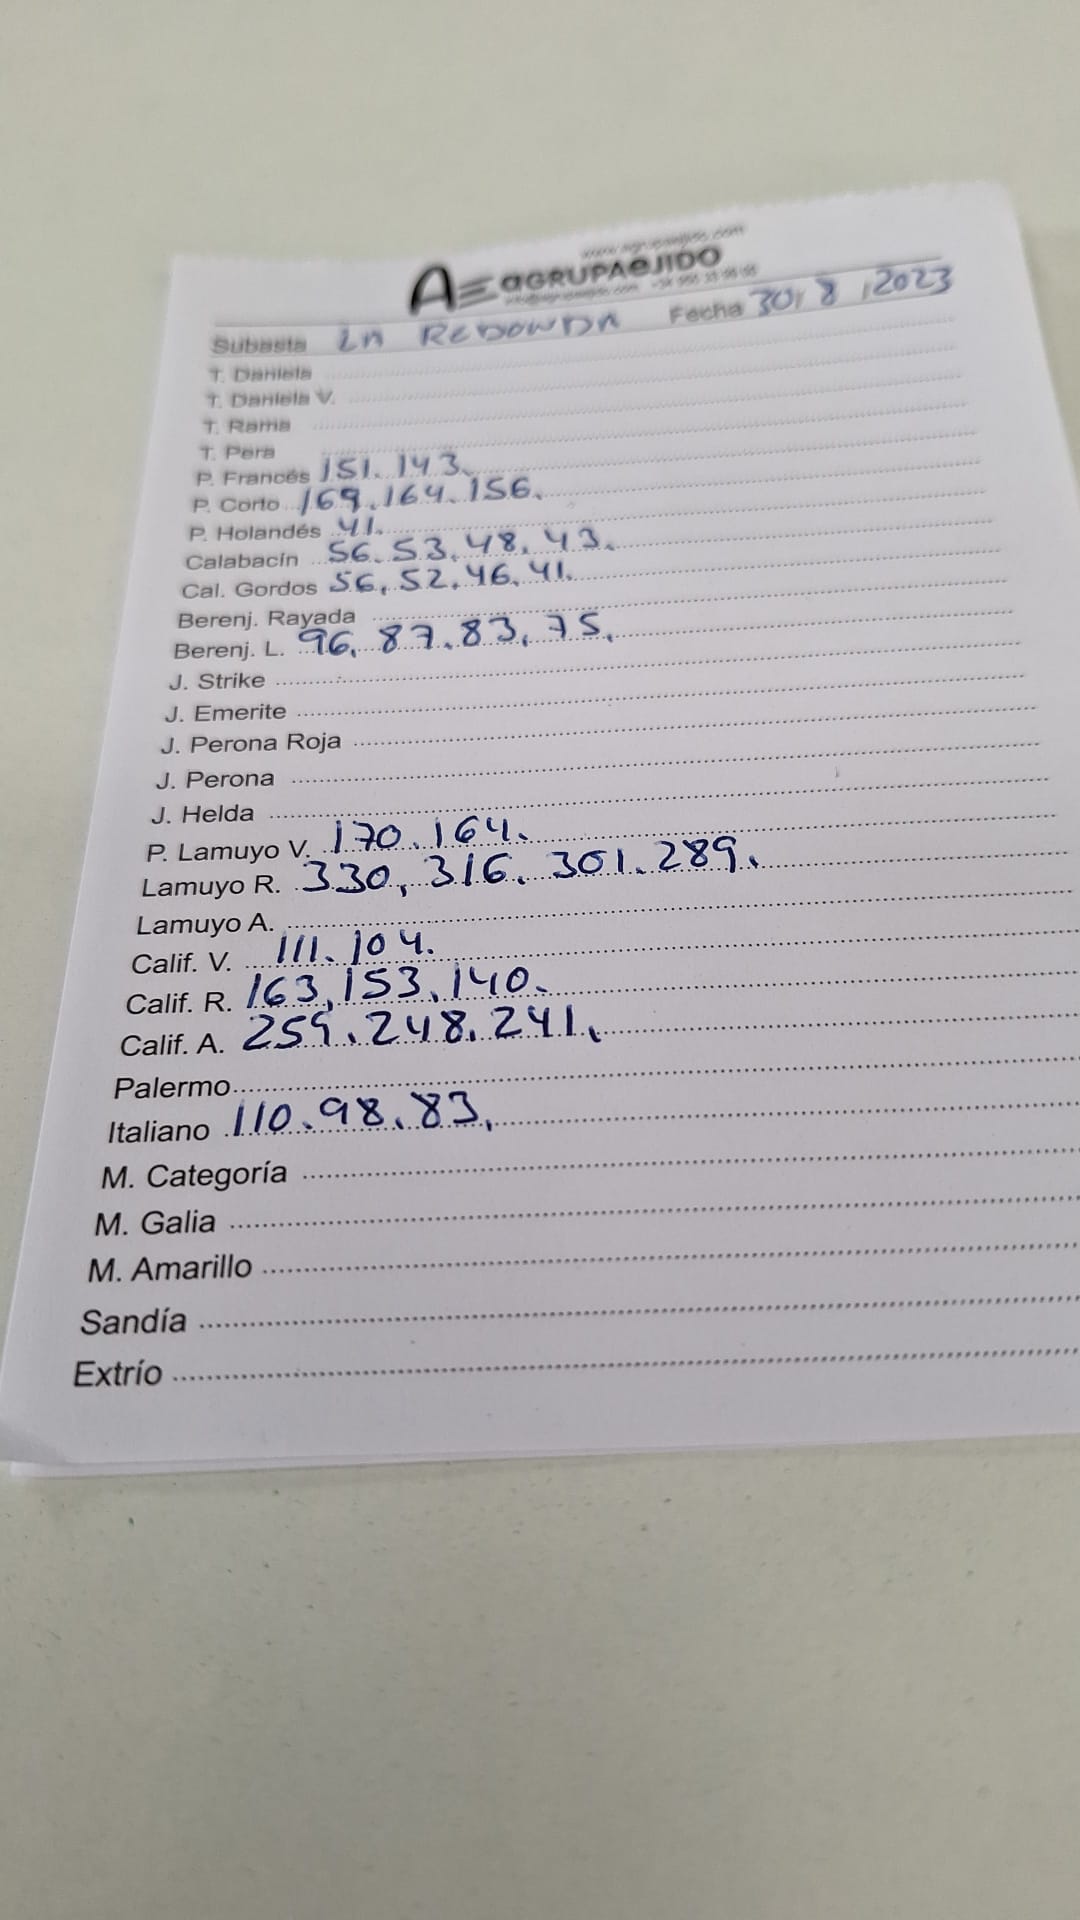 www.agrupaejido.com
AE aGRUPAeJIDO
Subasta LA REDONDA Fecha 30, 8, 2023
T. Daniela
T. Daniela V.
T. Rama
T. Pera
P. Francés 151. 143.
P. Corto 169. 164. 156.
P. Holandés 41.
Calabacín 56. 53. 48. 43.
Cal. Gordos 56. 52. 46. 41.
Berenj. Rayada
Berenj. L. 96. 87. 83. 75.
J. Strike
J. Emerite
J. Perona Roja
J. Perona
J. Helda
P. Lamuyo V. 170. 164.
Lamuyo R. 330, 316. 301. 289.
Lamuyo A.
Calif. V. 111. 104.
Calif. R. 163, 153. 140.
Calif. A. 259. 248. 241.
Palermo
Italiano 110. 98. 83.
M. Categoría
M. Galia
M. Amarillo
Sandía
Extrío